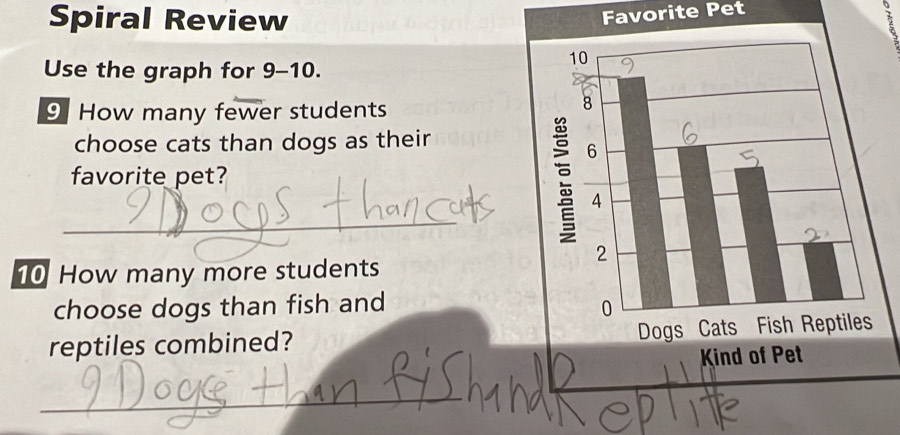 Spiral Review
Use the graph for 9–10.
9 How many fewer students
choose cats than dogs as their
favorite pet?
9 Docgs than cats
10 How many more students
choose dogs than fish and
reptiles combined?
9 Dogs than fishand Reptite
Favorite Pet
Number of Votes
10
8
6
4
2
0
9
6
5
2
Dogs Cats Fish Reptiles
Kind of Pet